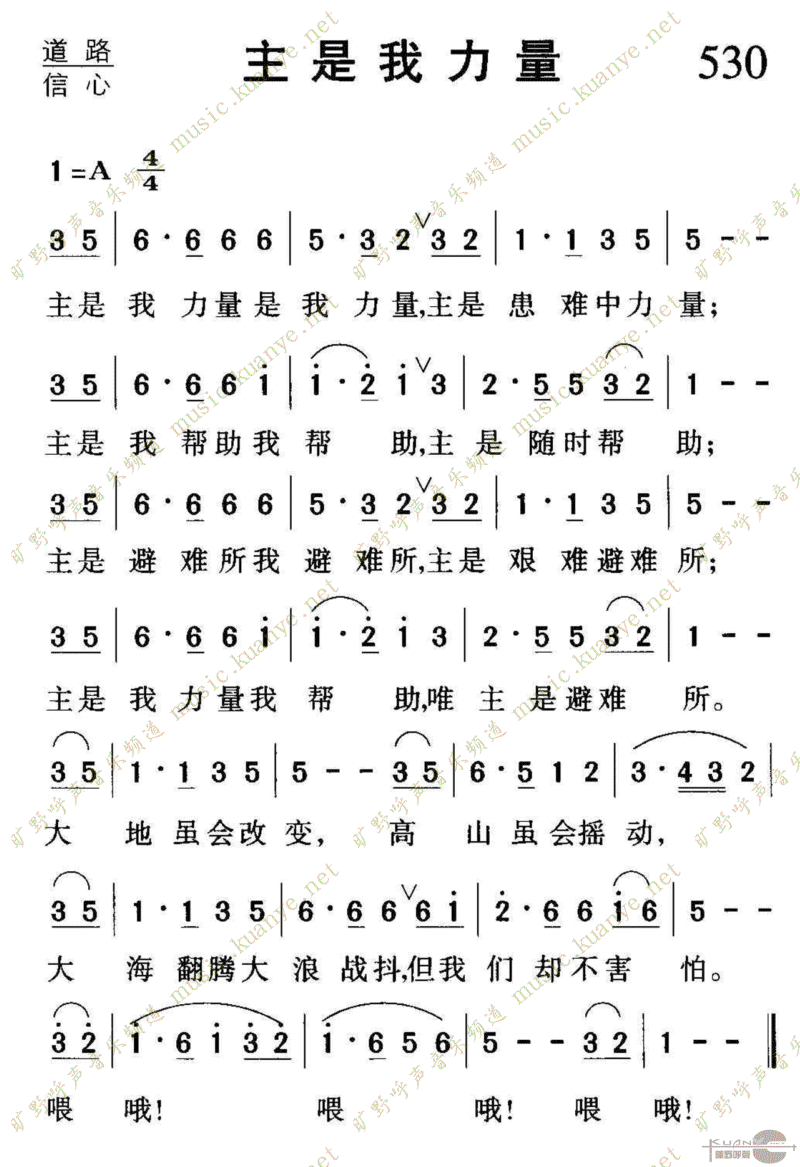 道路
信心
主是我力量
530
1=A 4/4
3 5 | 6 · 6 6 6 | 5 · 3 2 ∨ 3 2 | 1 · 1 3 5 | 5 - -
主是 我 力量是我 力量,主是 患 难中力 量;
3 5 | 6 · 6 6 i | i · 2̇ i ∨ 3 | 2 · 5 5 3 2 | 1 - -
主是 我 帮助我 帮 助,主 是 随时帮 助;
3 5 | 6 · 6 6 6 | 5 · 3 2 ∨ 3 2 | 1 · 1 3 5 | 5 - -
主是 避 难所我 避 难所,主是 艰 难避难 所;
3 5 | 6 · 6 6 i | i · 2̇ i 3 | 2 · 5 5 3 2 | 1 - -
主是 我 力量我 帮 助,唯 主 是避难 所。
3 5 | 1 · 1 3 5 | 5 - - 3 5 | 6 · 5 1 2 | 3 · 4 3 2 |
大 地虽会改 变, 高 山虽会摇动,
3 5 | 1 · 1 3 5 | 6 · 6 6 ∨ 6 i | 2̇ · 6 6 i 6 | 5 - -
大 海翻腾大 浪战抖,但我 们却不害 怕。
3̇ 2̇ | i · 6 i 3̇ 2̇ | i · 6 5 6 | 5 - - 3 2 | 1 - - ‖
喂 哦! 喂 哦! 喂 哦!
旷野呼声音乐频道 music.kuanye.net
KUANYE
旷野呼声